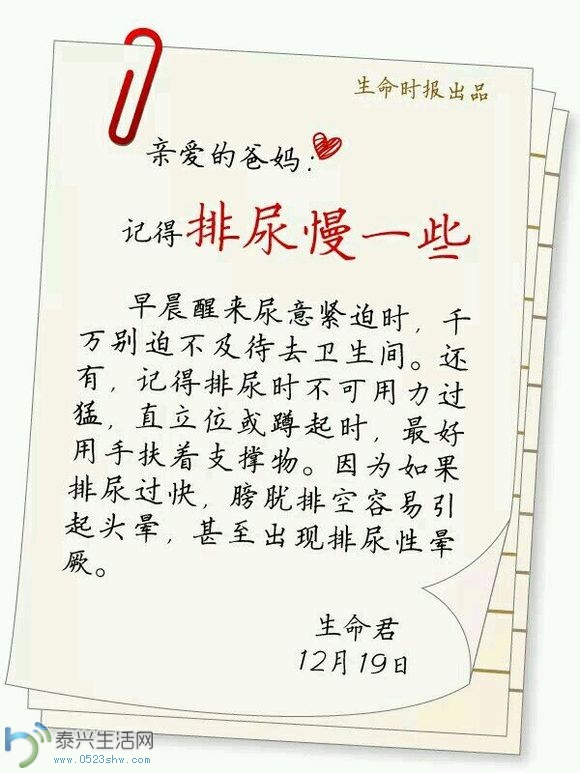 生命时报出品
亲爱的爸妈：
记得排尿慢一些
早晨醒来尿意紧迫时，千
万别迫不及待去卫生间。还
有，记得排尿时不可用力过
猛，直立位或蹲起时，最好
用手扶着支撑物。因为如果
排尿过快，膀胱排空容易引
起头晕，甚至出现排尿性晕
厥。
生命君
12月19日
泰兴生活网
www.0523shw.com